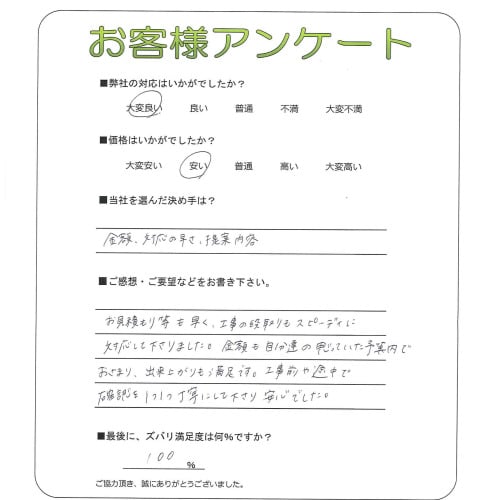 お客様アンケート
■弊社の対応はいかがでしたか？
大変良い 良い 普通 不満 大変不満
■価格はいかがでしたか？
大変安い 安い 普通 高い 大変高い
■当社を選んだ決め手は？
金額、対応の早さ、提案内容
■ご感想・ご要望などをお書き下さい。
お見積もり等も早く、工事の段取りもスピーディに
対応して下さりました。金額も自分達の思っていた予算内で
おさまり、出来上がりも満足です。工事前や途中で
確認を1つ1つ丁寧にして下さり安心でした。
■最後に、ズバリ満足度は何%ですか？
100 %
ご協力頂き、誠にありがとうございました。